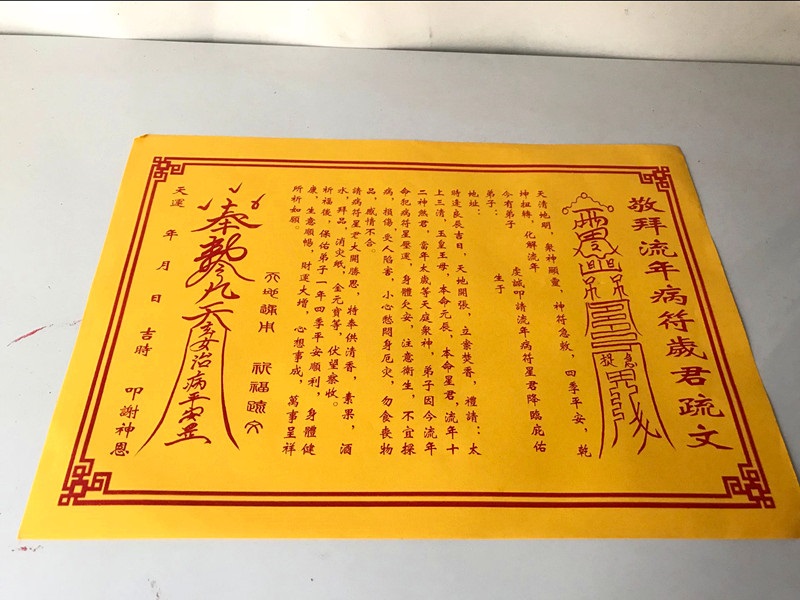 敬拜流年病符歲君疏文
天清地明，眾神顯靈，神符急效，四季平安，乾
坤扭轉，化解流年
今有弟子　虔誠叩請流年病符星君降臨庇佑
弟子：　生于
地址：
時逢良辰吉日，天地開張，立案焚香，禮請：太
上三清，玉皇王母，本命元辰，本命星君，流年十
二神煞君，當年太歲等天庭眾神，弟子因今流年
命犯病符星壓運，身體欠安，注意衛生，不宜探
病，損傷，受人陷害，小心愁悶身厄災，勿食喪物
品，感情不合。
請病符星君大開勝恩，特奉供清香，素果，酒
水，拜品，消災紙，金元寶等，伏望察收。
祈福後，保佑弟子一年四季平安順利，身體健
康，生意順暢，財運大增，心想事成，萬事呈祥
所祈如願。
祈福疏文
奉
治病平安
天運　年　月　日　吉時　叩謝神恩